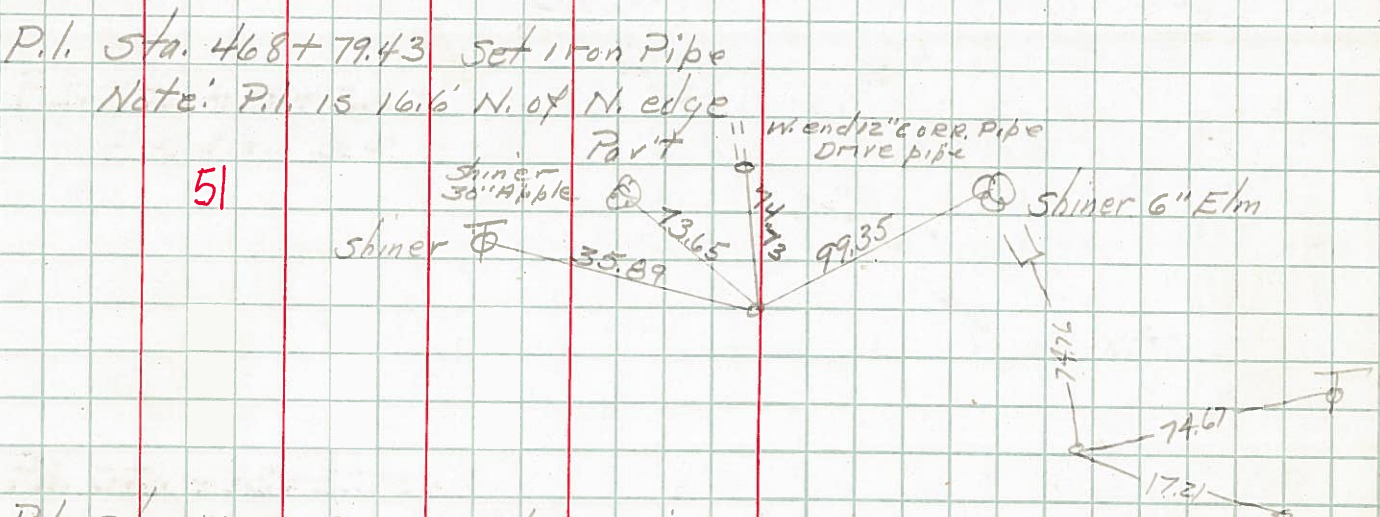 P.I. Sta. 468+79.43 Set Iron Pipe
Note: P.I. is 16.6' N. of N. edge
Pav't
W. end 12" CORR. Pipe
Drive pipe
Shiner
30" Apple
51
Shiner 6" Elm
Shiner
35.89
73.65
74.73
99.35
74.67
17.21